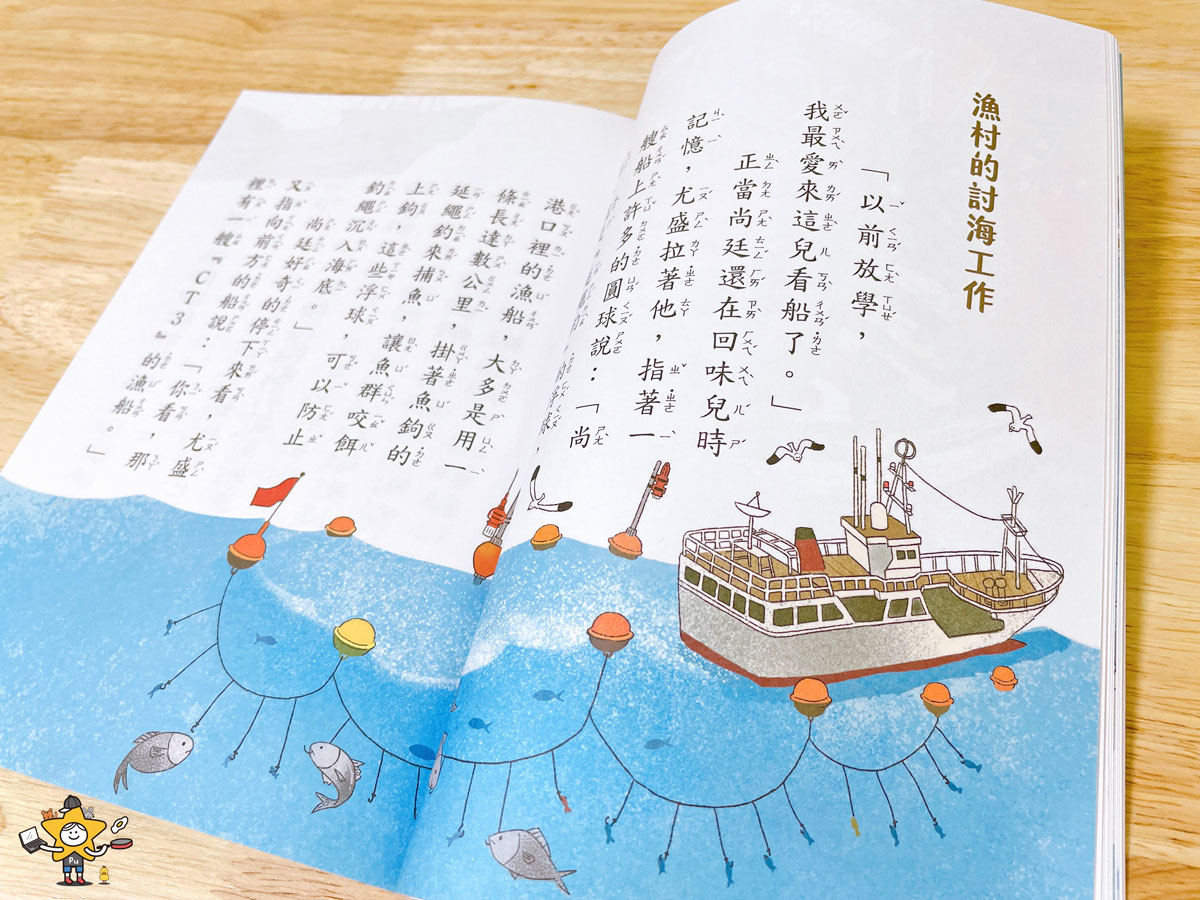 漁村的討海工作
「以前放學，
我最愛來這兒看船了。」
正當尚廷還在回味兒時
記憶，尤盛拉著他，指著一
艘船上許多的圓球說：「尚
港口裡的漁船，大多是用一
條長達數公里，掛著魚鉤的
延繩釣來捕魚，讓魚群咬餌
上鉤，這些浮球，可以防止
釣繩沉入海底。」
尚廷好奇的停下來看，尤盛
又指向前方的船說：「你看，那
裡有一艘『CT3』的漁船。」
Pu